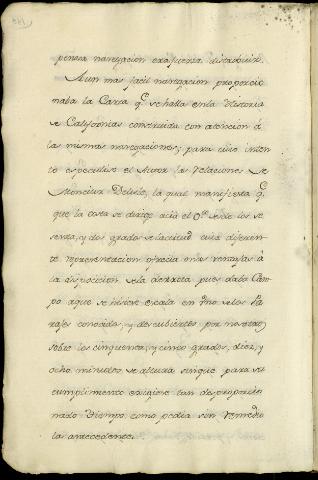 pensa navegacion era fuerza distribuir.
Aun mas facil navegacion proporcio
naba la Carta q.e se halla en la Historia
de Californias construida con atencion á
las mismas navegaciones, y para cuio inten
to especuló el Autor las Relaciones de
Monsieur Delisle, la qual manifiesta q.e
que la costa se dirige acia el O. desde los se
senta, y dos grados de latitud cuia diferen
te representacion ofrecia mas ventajas á
la disposicion de la derrota pues daba Cam
po a que se hiciese escala en uno de los Pa
rajes conocidos, y descubiertos por nosotros
sobre los cinquenta, y cinco grados, diez, y
ocho minutos de altura sin que para su
cumplimiento exigiese tan desproporcio
nado tiempo como pedia sin remedio
las antecedentes.